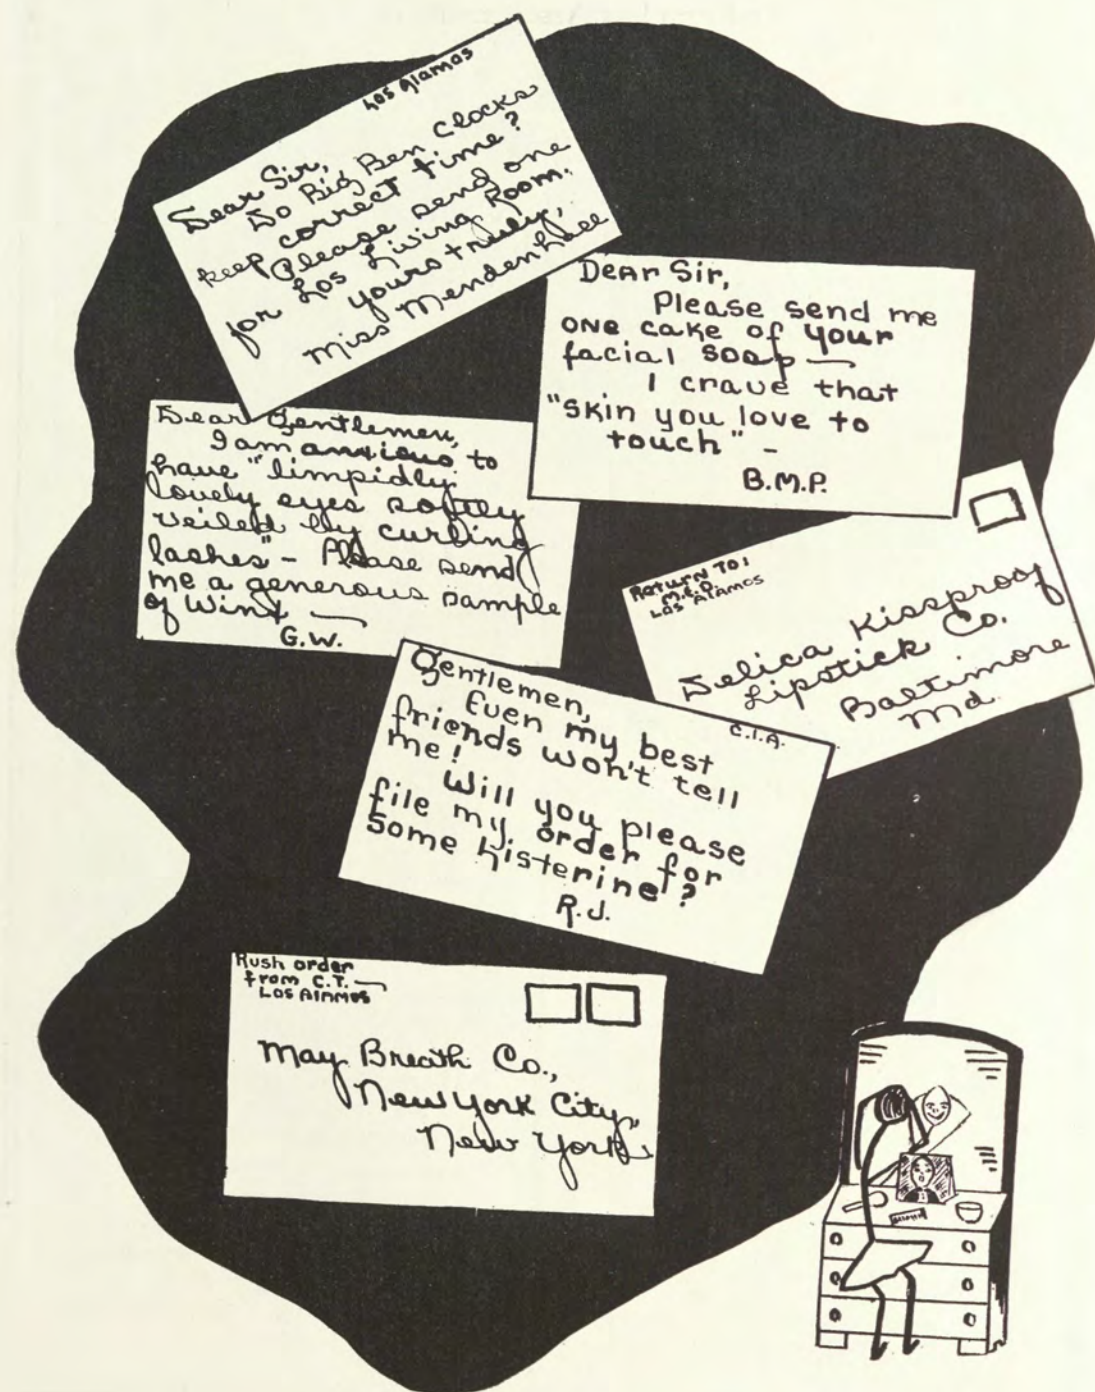 Los Alamos
Dear Sir,
Do Big Ben Clocks
keep correct time?
Please send one
for Los Living Room.
yours truly,
Miss Mendenhall
Dear Sir,
Please send me
one cake of your
facial soap —
I crave that
"skin you love to
touch" -
B.M.P.
Dear Gentlemen,
I am anxious to
have "limpidly
lovely eyes softly
veiled by curling
lashes" - Please send
me a generous sample
of Winx —
G.W.
Return To:
M.E.D.
Los Alamos
Delica Kissproof
Lipstick Co.
Baltimore
Md.
C.I.A.
Gentlemen,
Even my best
friends won't tell
me!
Will you please
file my order for
some Listerine?
R.J.
Rush order
from C.T. —
Los Alamos
May Breath Co.,
New York City,
New York